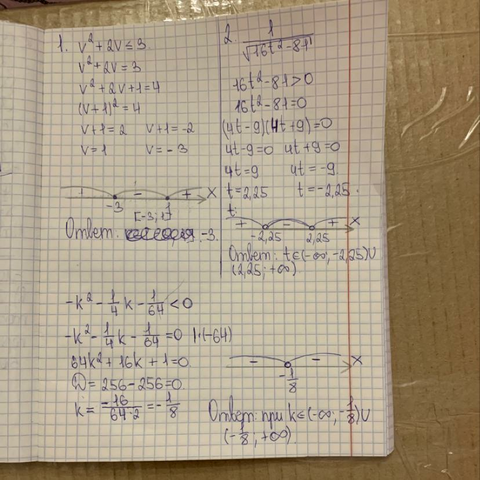 1. v² + 2v ≤ 3
v² + 2v = 3
v² + 2v + 1 = 4
(v+1)² = 4
v+1 = 2 v+1 = -2
v = 1 v = -3
+ - + x
-3 1
[-3; 1]
Ответ: -3.
2. 1/√(16t² - 81)
16t² - 81 > 0
16t² - 81 = 0
(4t - 9)(4t + 9) = 0
4t - 9 = 0 4t + 9 = 0
4t = 9 4t = -9
t = 2,25 t = -2,25.
t:
+ - + x
-2,25 2,25
Ответ: t ∈ (-∞; -2,25) ∪
(2,25; +∞)
-k² - 1/4 k - 1/64 < 0
-k² - 1/4 k - 1/64 = 0 | · (-64)
64k² + 16k + 1 = 0
D = 256 - 256 = 0
k = -16/(64·2) = -1/8
- - x
-1/8
Ответ: при k ∈ (-∞; -1/8) ∪
(-1/8; +∞)